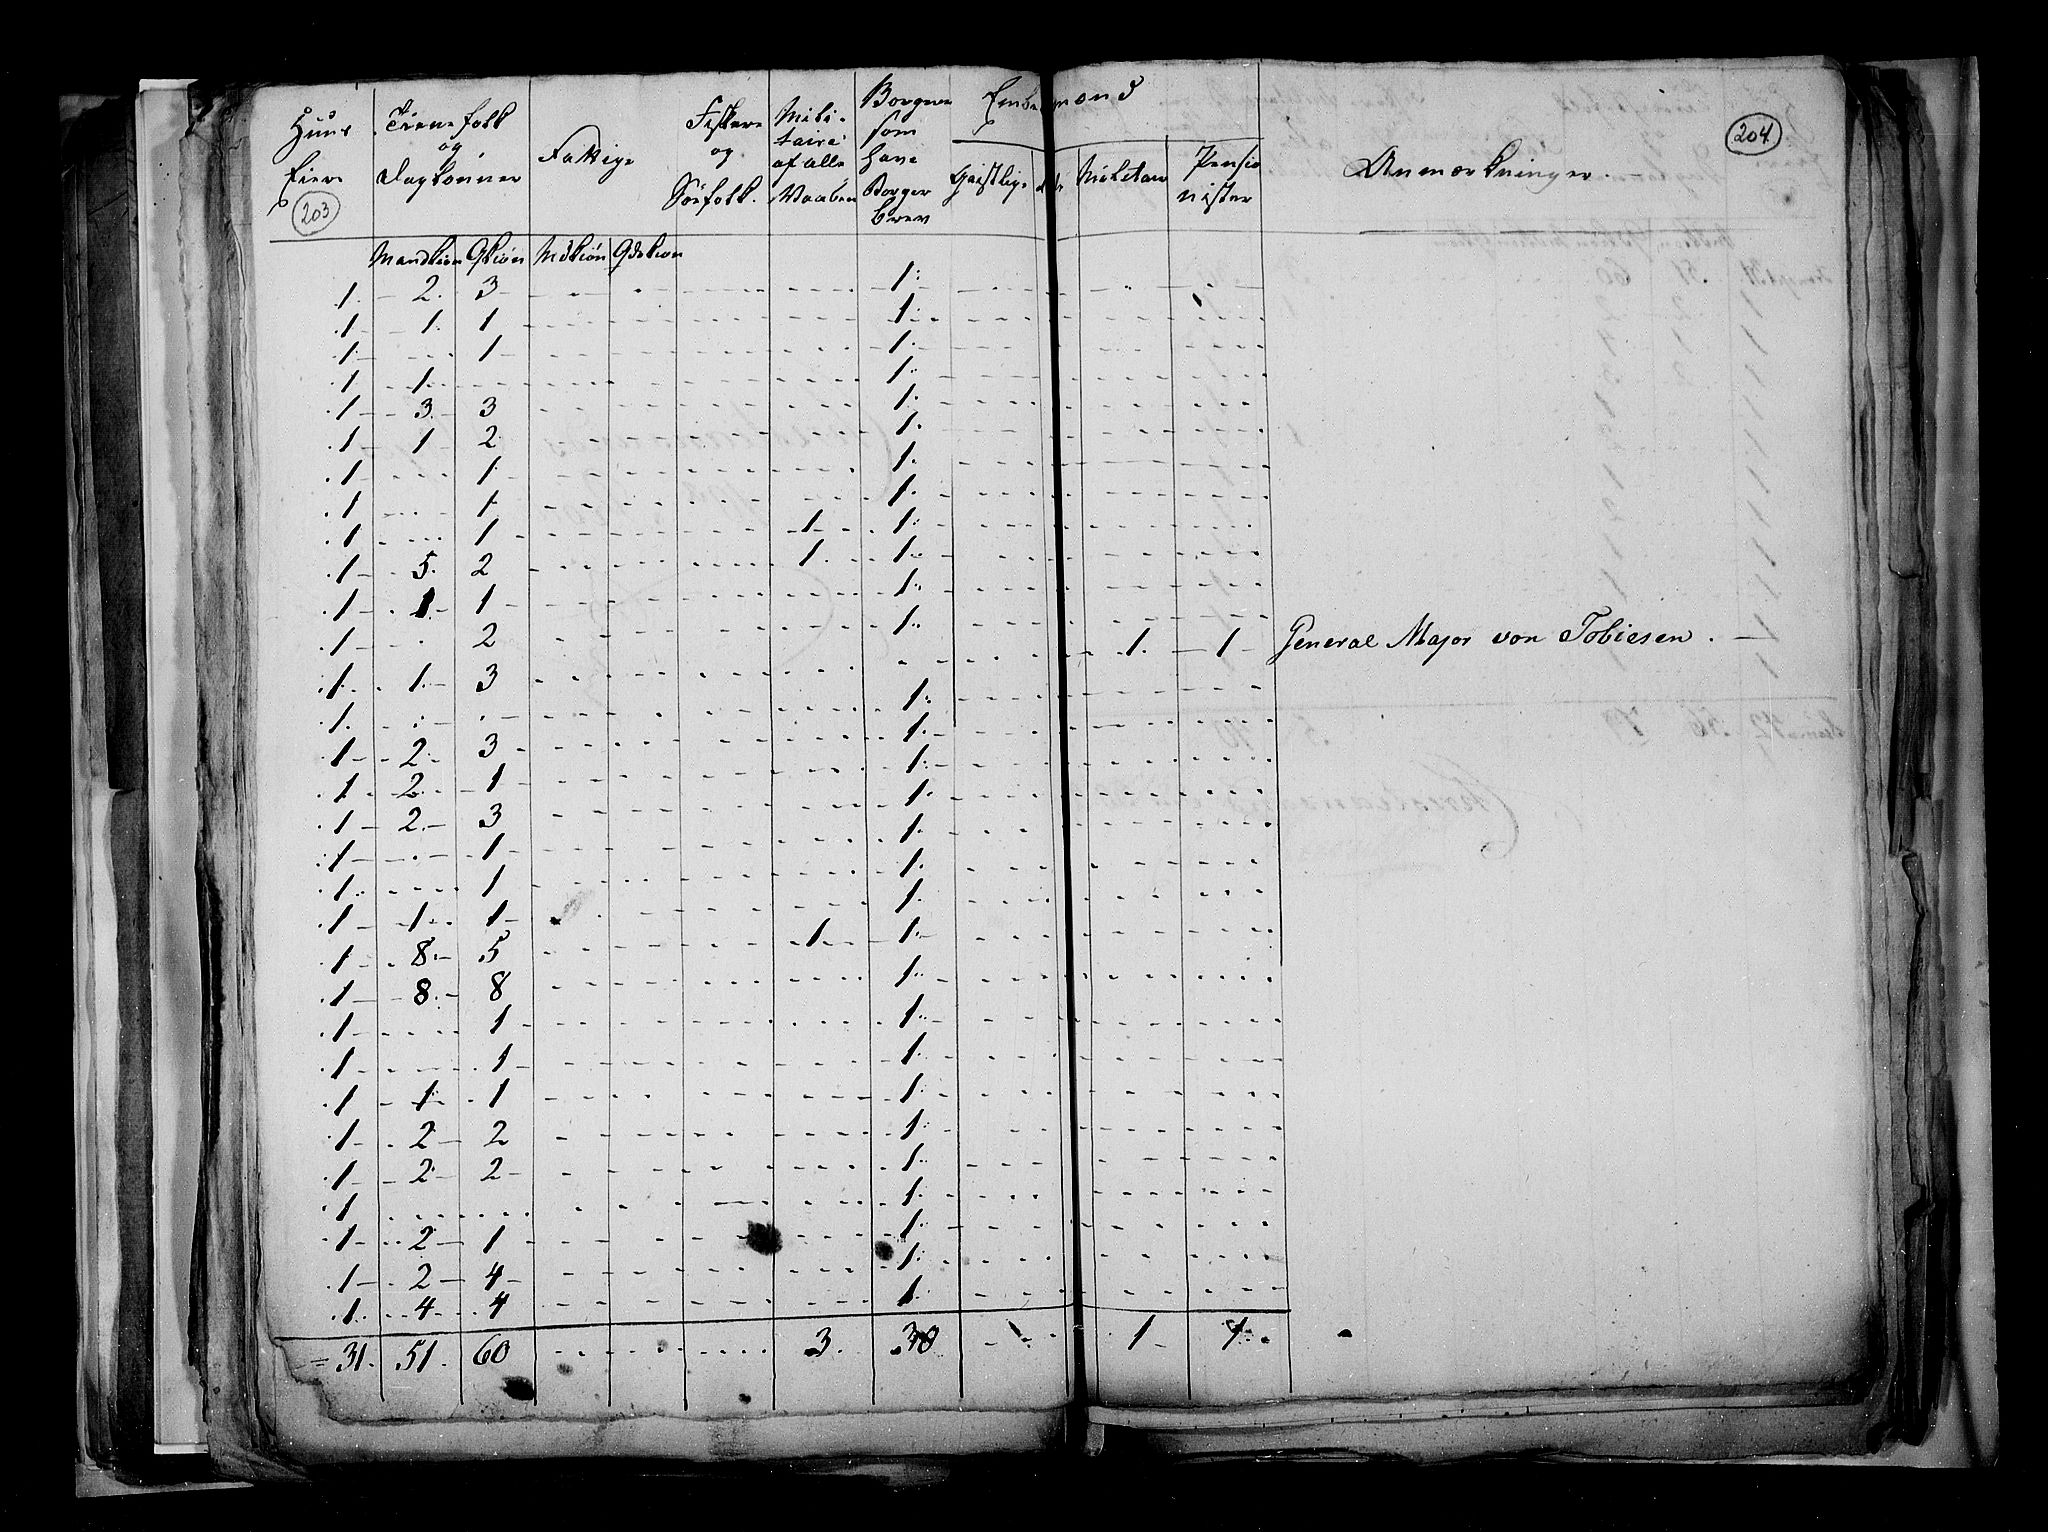 Huus Eiere | Tienefolk og Daglønner | Fattige | Fiskere og Søefolk. | Militaire af alle Vaaben | Borgere som have Borger brev | Embedsmænd | Geistlige | Militair | Pensionister | Anmærkninger.
203
204
Mandkiøn Qkiøn Mdkiøn Qdekiøn
1. 2. 3 1.
1 1. 1 1.
1 1 1.
1 1. 1.
1 3. 3 1.
1 1 2 1.
1 1. 1.
1 1 1.
1 1 1 1.
1 5. 2 1. 1.
1 1. 1 1.
1 2 1.
1. 1. 3 1. 1 General Major von Tobiesen.
1. 1.
1 2. 3 1.
1 2. 1 1.
1 2. 3 1.
1 1 1.
1. 1 1.
1 1. 1 1.
1 8. 5 1 1.
1 8. 8 1.
1 1 1.
1 1 1.
1 1. 1 1.
1 2 2 1.
1 2 2 1.
1 1.
1 2 1 1.
1 2 4 1.
1. 4 4 1.
= 31. 51. 60 3. 30 1 1.